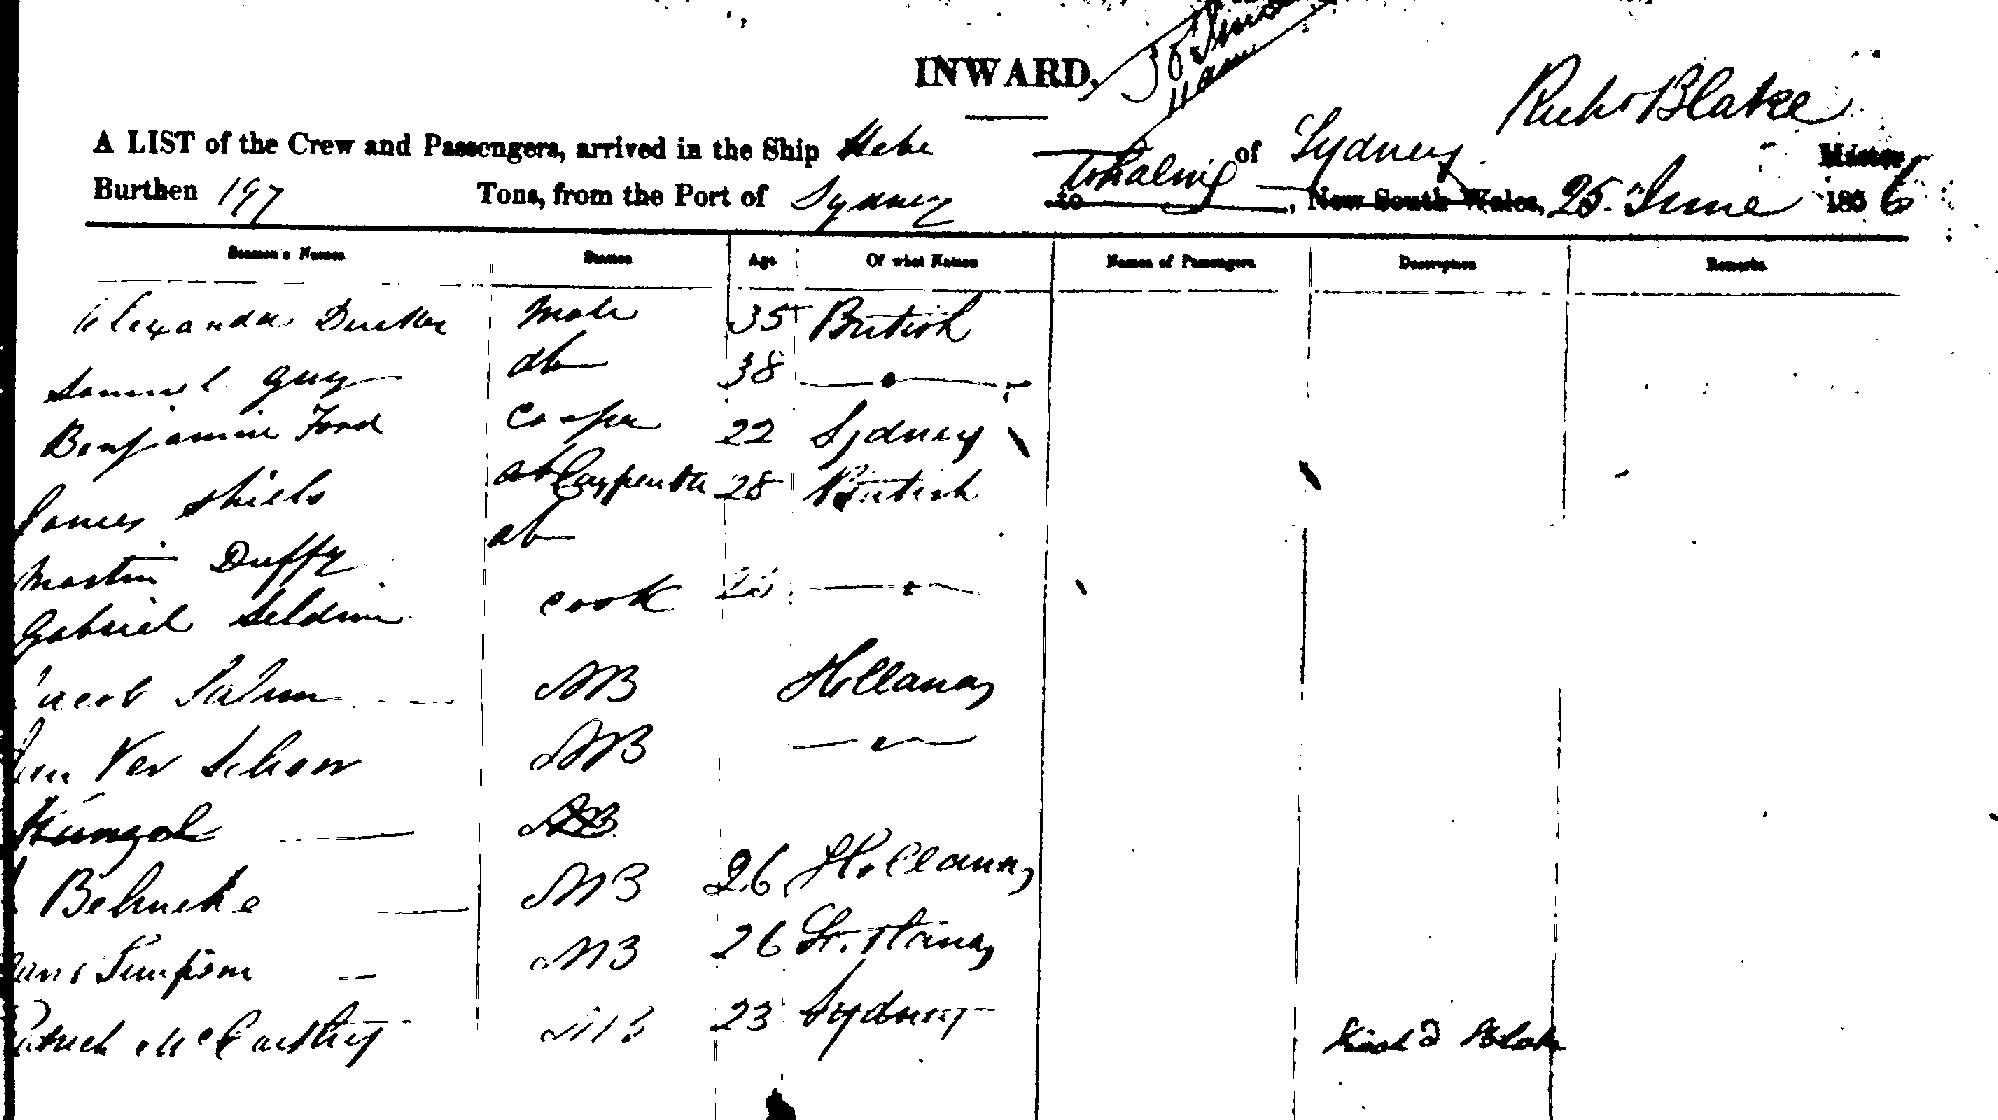 INWARD,
Richd Blake
A LIST of the Crew and Passengers, arrived in the Ship Hebe of Sydney Master
Burthen 197 Tons, from the Port of Sydney to Whaling, New South Wales, 25 June 1856
Seamen's Names Station Age Of what Nation Names of Passengers Description Remarks
Alexander Mate 35 British
Samuel Guy ab 38 — " —
Benjamin Ford Cooper 22 Sydney
James Shiels ab Carpenter 28 British
Martin Duffy ab
Gabriel cook — " —
Jacob AB Holland
Ver AB — " —
AB
Behncke AB 26 Holland
Simpson AB 26
Patrick McCarthy AB 23 Sydney
Richd Blake